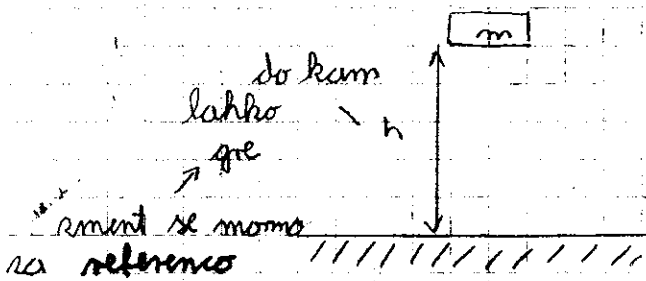 m
do kam
lahko
h
gre
zment se moramo
za referenco